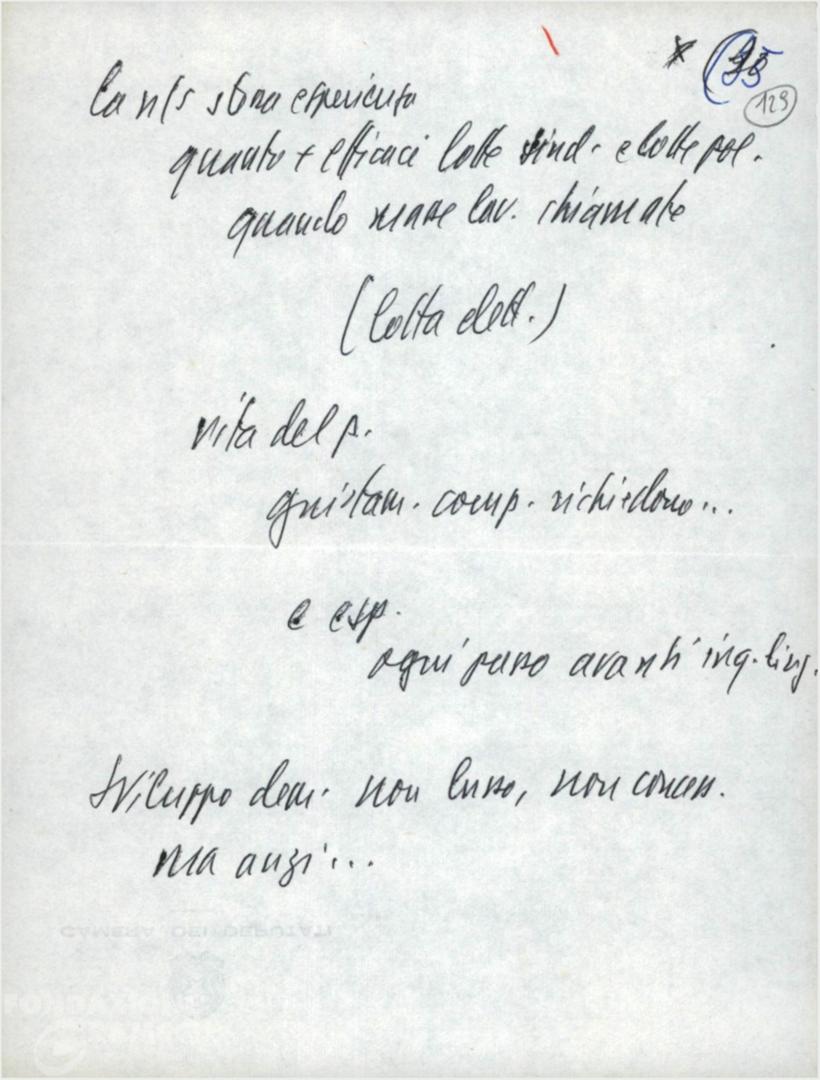 35
129
la n/s stessa esperienza
quanto + efficaci lotte sind. e lotte pol.
quando masse lav. chiamate
(lotta elett.)
vita del p.
giustam. comp. richiedono...
e esp.
ogni passo avanti
Sviluppo dem. non lusso, non concess.
ma anzi...
CAMERA DEI DEPUTATI
FONDAZIONE